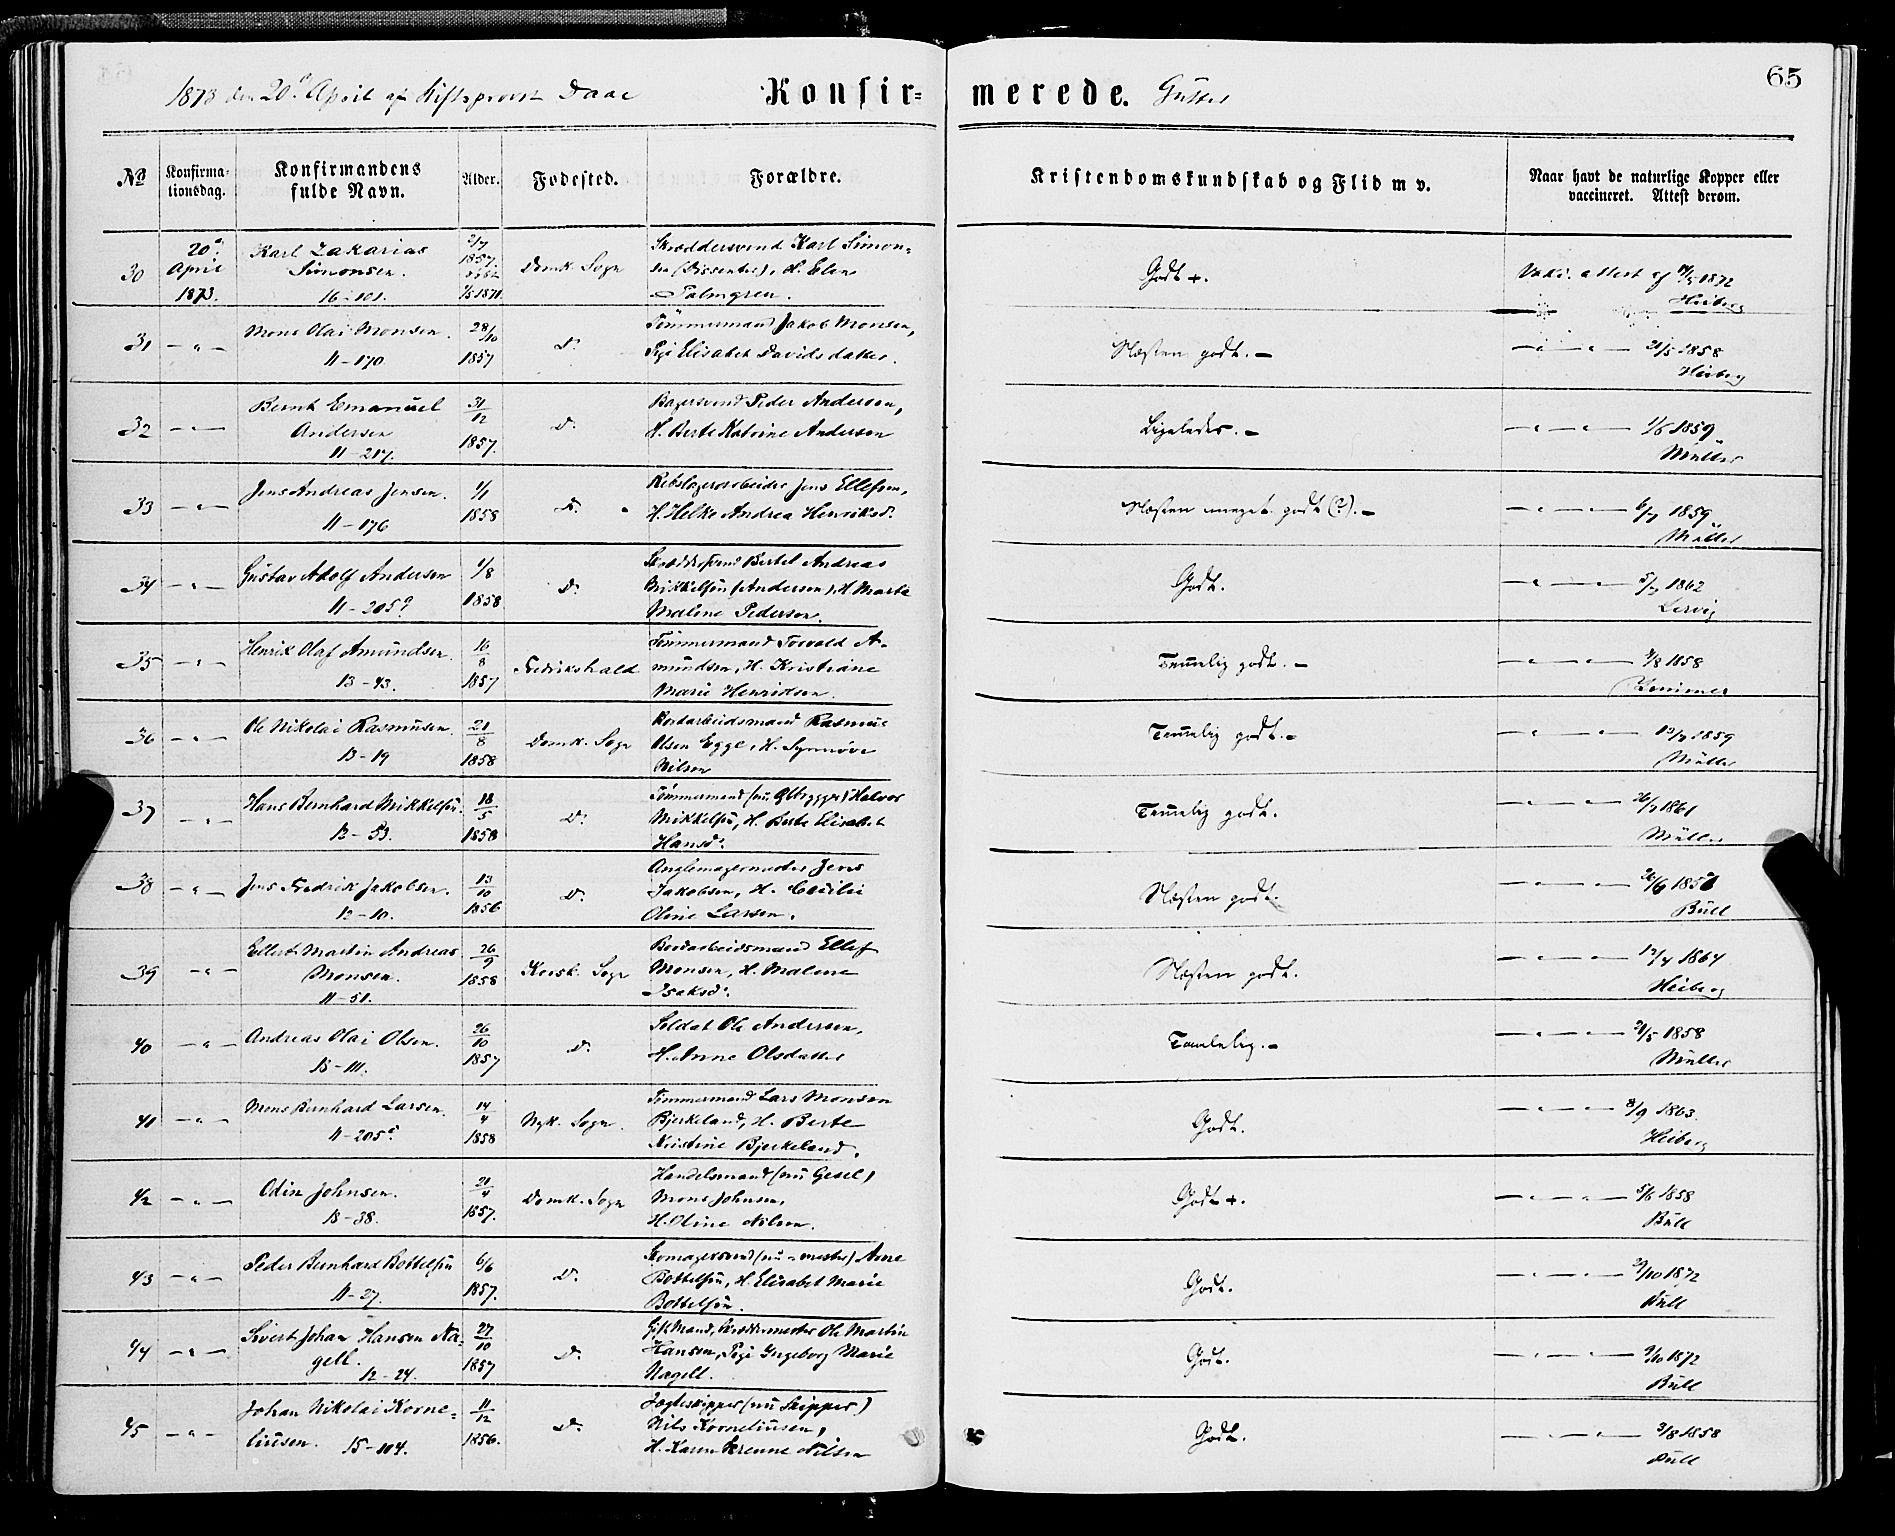 1873 den 20de April af Stiftsprovst Daae
Konfir=
merede.
Gutter
65
No
Konfirma=
tionsdag.
Konfirmandens
fulde Navn.
Alder.
Fødested.
Forældre.
Kristendomskundskab og Flid m v.
Naar havt de naturlige Kopper eller
vaccineret. Attest derom.
30
20de
April
1873.
Karl Zakarias
Simonsen.
16-101.
2/7
1857.
1/5 1871
Domk. Sogn
Skræddersvend Karl Simon=
sen (Dissenter), H. Elen
Palmgren.
Godt +.
Vakc. attest af 1872
Heiberg
31
— " —
Mons Olai Monsen.
11-170
28/10
1857
Do
Tømmermand Jakob Monsen,
Pige Elisabet Davidsdatter.
Næsten godt. —
— " — " — 21/5 1858
Heiberg
32
— " —
Bernt Emanuel
Andersen
11-217.
31
12
1857.
Do
Bagersvend Peder Andersen,
H. Berte Katrine Andersen
Ligeledes. —
— " — " — 1/6 1859
Müller
33
— " —
Jens Andreas Jensen.
11-176
1/1
1858
Do
Rebslagerarbeider Jens Ellefsen,
H. Helke Andrea Henriksd.
Næsten meget godt (?). —
— " — " — 6/7 1859
Müller
34
— " —
Gustav Adolf Andersen
11-205a
1/8
1858
Do
Skræddersvend Bertel Andreas
Mikkelsen (Andersen), H. Marta
Malene Pedersen.
Godt.
— " — " — 5/7 1862
Lervig
35
— " —
Henrik Olaf Amundsen.
13-43.
16
8
1857
Fredrikshald
Tømmermand Torvald A=
mundsen, H. Kristiane
Marie Henriksen.
Temmelig godt. —
— " — " — 4/8 1858
36
— " —
Ole Nikolai Rasmusen.
13-19
21
8
1858
Domk. Sogn
Bordarbeidsmand Rasmus
Olsen Egge, H. Synnøve
Nilsen
Temmelig godt. —
— " — " — 13/7 1859
Müller
37
— " —
Hans Bernhard Mikkelsen.
12-53.
18
5
1858
Do
Tømmermand (nu Ølbrygger) Halvor
Mikkelsen, H. Berte Elisabet
Hansd.
Temmelig godt.
— " — " — 26/7 1861
Müller
38
— " —
Jens Fredrik Jakobsen.
12-10.
13
10
1856
Do
Anglemagermester Jens
Jakobsen, H. Cecilie
Oline Larsen.
Næsten godt.
— " — " — 26/6 1858
Bull
39
— " —
Ellert Martin Andreas
Monsen.
11-51.
26
9
1858
Korsk. Sogn
Bordarbeidsmand Ellef
Monsen, H. Malene
Isaksd.
Næsten godt.
— " — " — 12/4 1864
Heiberg
40
— " —
Andreas Olai Olsen.
15-111.
26
10
1857
Do
Soldat Ole Andersen,
H. Anne Olsdatter
Temmelig. —
— " — " — 21/5 1858
Müller
41
— " —
Mons Bernhard Larsen.
11-205c
14
4
1858
Nyk. Sogn.
Tømmermand Lars Monsen
Bjerkeland, H. Berte
Kristine Bjerkeland.
Godt.
— " — " — 8/9 1863.
Heiberg
42
— " —
Odin Johnsen.
15-38.
21
4
1857.
Domk. Sogn
Handelsmand (nu Gesel)
Mons Johnsen,
H. Oline Nilsen.
Godt +.
— " — " — 5/6 1858
Bull
43
— " —
Peder Bernhard Bottelsen
11-27.
6/6
1857.
Do
Skomagersvend (nu - mester) Arne
Bottelsen, H. Elisabet Marie
Bottelsen.
Godt.
— " — " — 29/10 1872
Bull
44
— " —
Sivert Johan Hansen Na=
gell.
12-24.
27
10
1857
Do
Gift Mand, Skræddermester Ole Martin
Hansen, Pige Ingeborg Marie
Nagell.
Godt.
— " — " — 9/10 1872
Bull
45
— " —
Johan Nikolai Korne=
liusen. 15-104.
11
12
1856.
Do
Jagteskipper (nu Skipper)
Nils Korneliusen,
H. Karen Serenne Nilsen
Godt.
— " — " — 3/8 1858
Bull